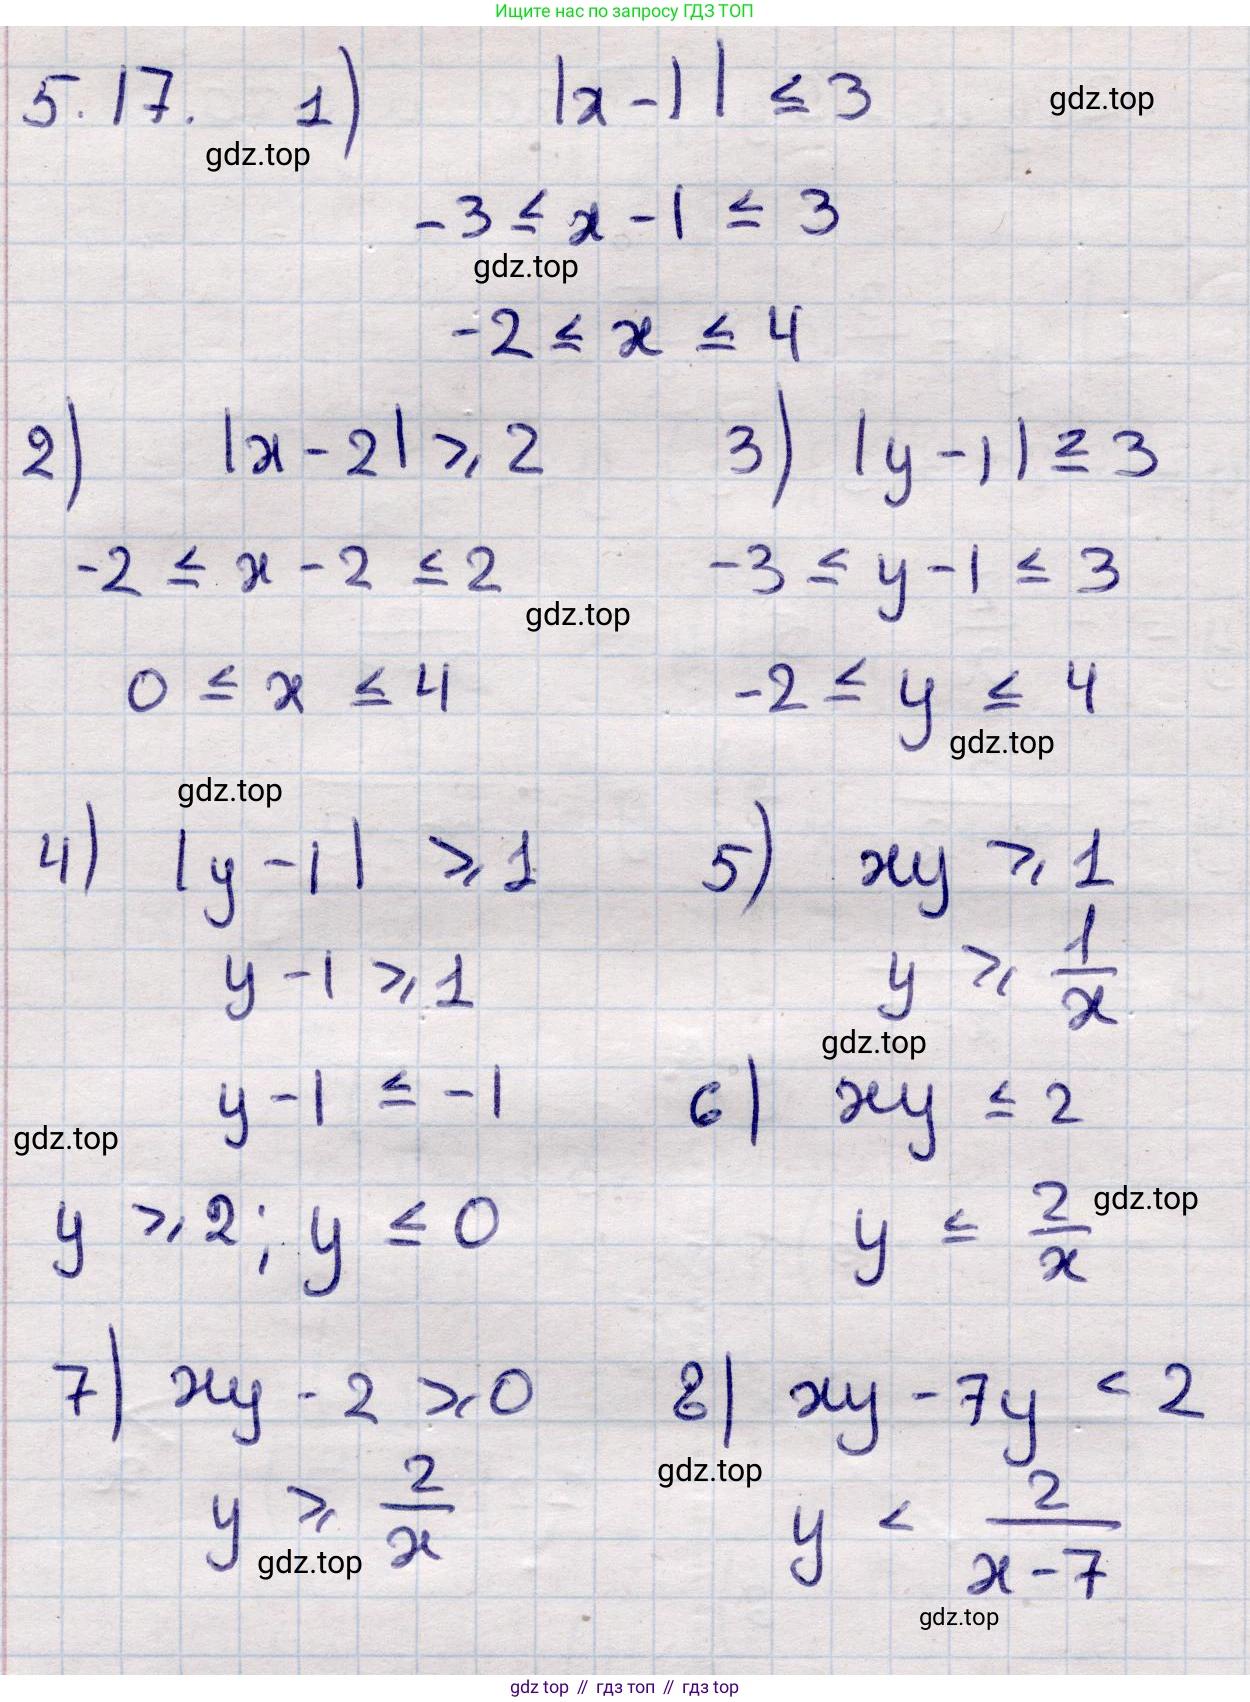 Ищите нас по запросу ГДЗ ТОП
5.17. 1) |x - 1| ≤ 3
gdz.top
gdz.top
-3 ≤ x - 1 ≤ 3
gdz.top
-2 ≤ x ≤ 4
2) |x - 2| ≥ 2
-2 ≤ x - 2 ≤ 2
0 ≤ x ≤ 4
3) |y - 1| ≤ 3
-3 ≤ y - 1 ≤ 3
gdz.top
-2 ≤ y ≤ 4
gdz.top
gdz.top
4) |y - 1| ≥ 1
y - 1 ≥ 1
y - 1 ≤ -1
gdz.top
y ≥ 2; y ≤ 0
5) xy ≥ 1
y ≥ 1/x
gdz.top
6) xy ≤ 2
y ≤ 2/x
gdz.top
7) xy - 2 ≥ 0
y ≥ 2/x
gdz.top
8) xy - 7y < 2
gdz.top
y < 2/(x - 7)
gdz.top
gdz top // гдз топ // гдз top